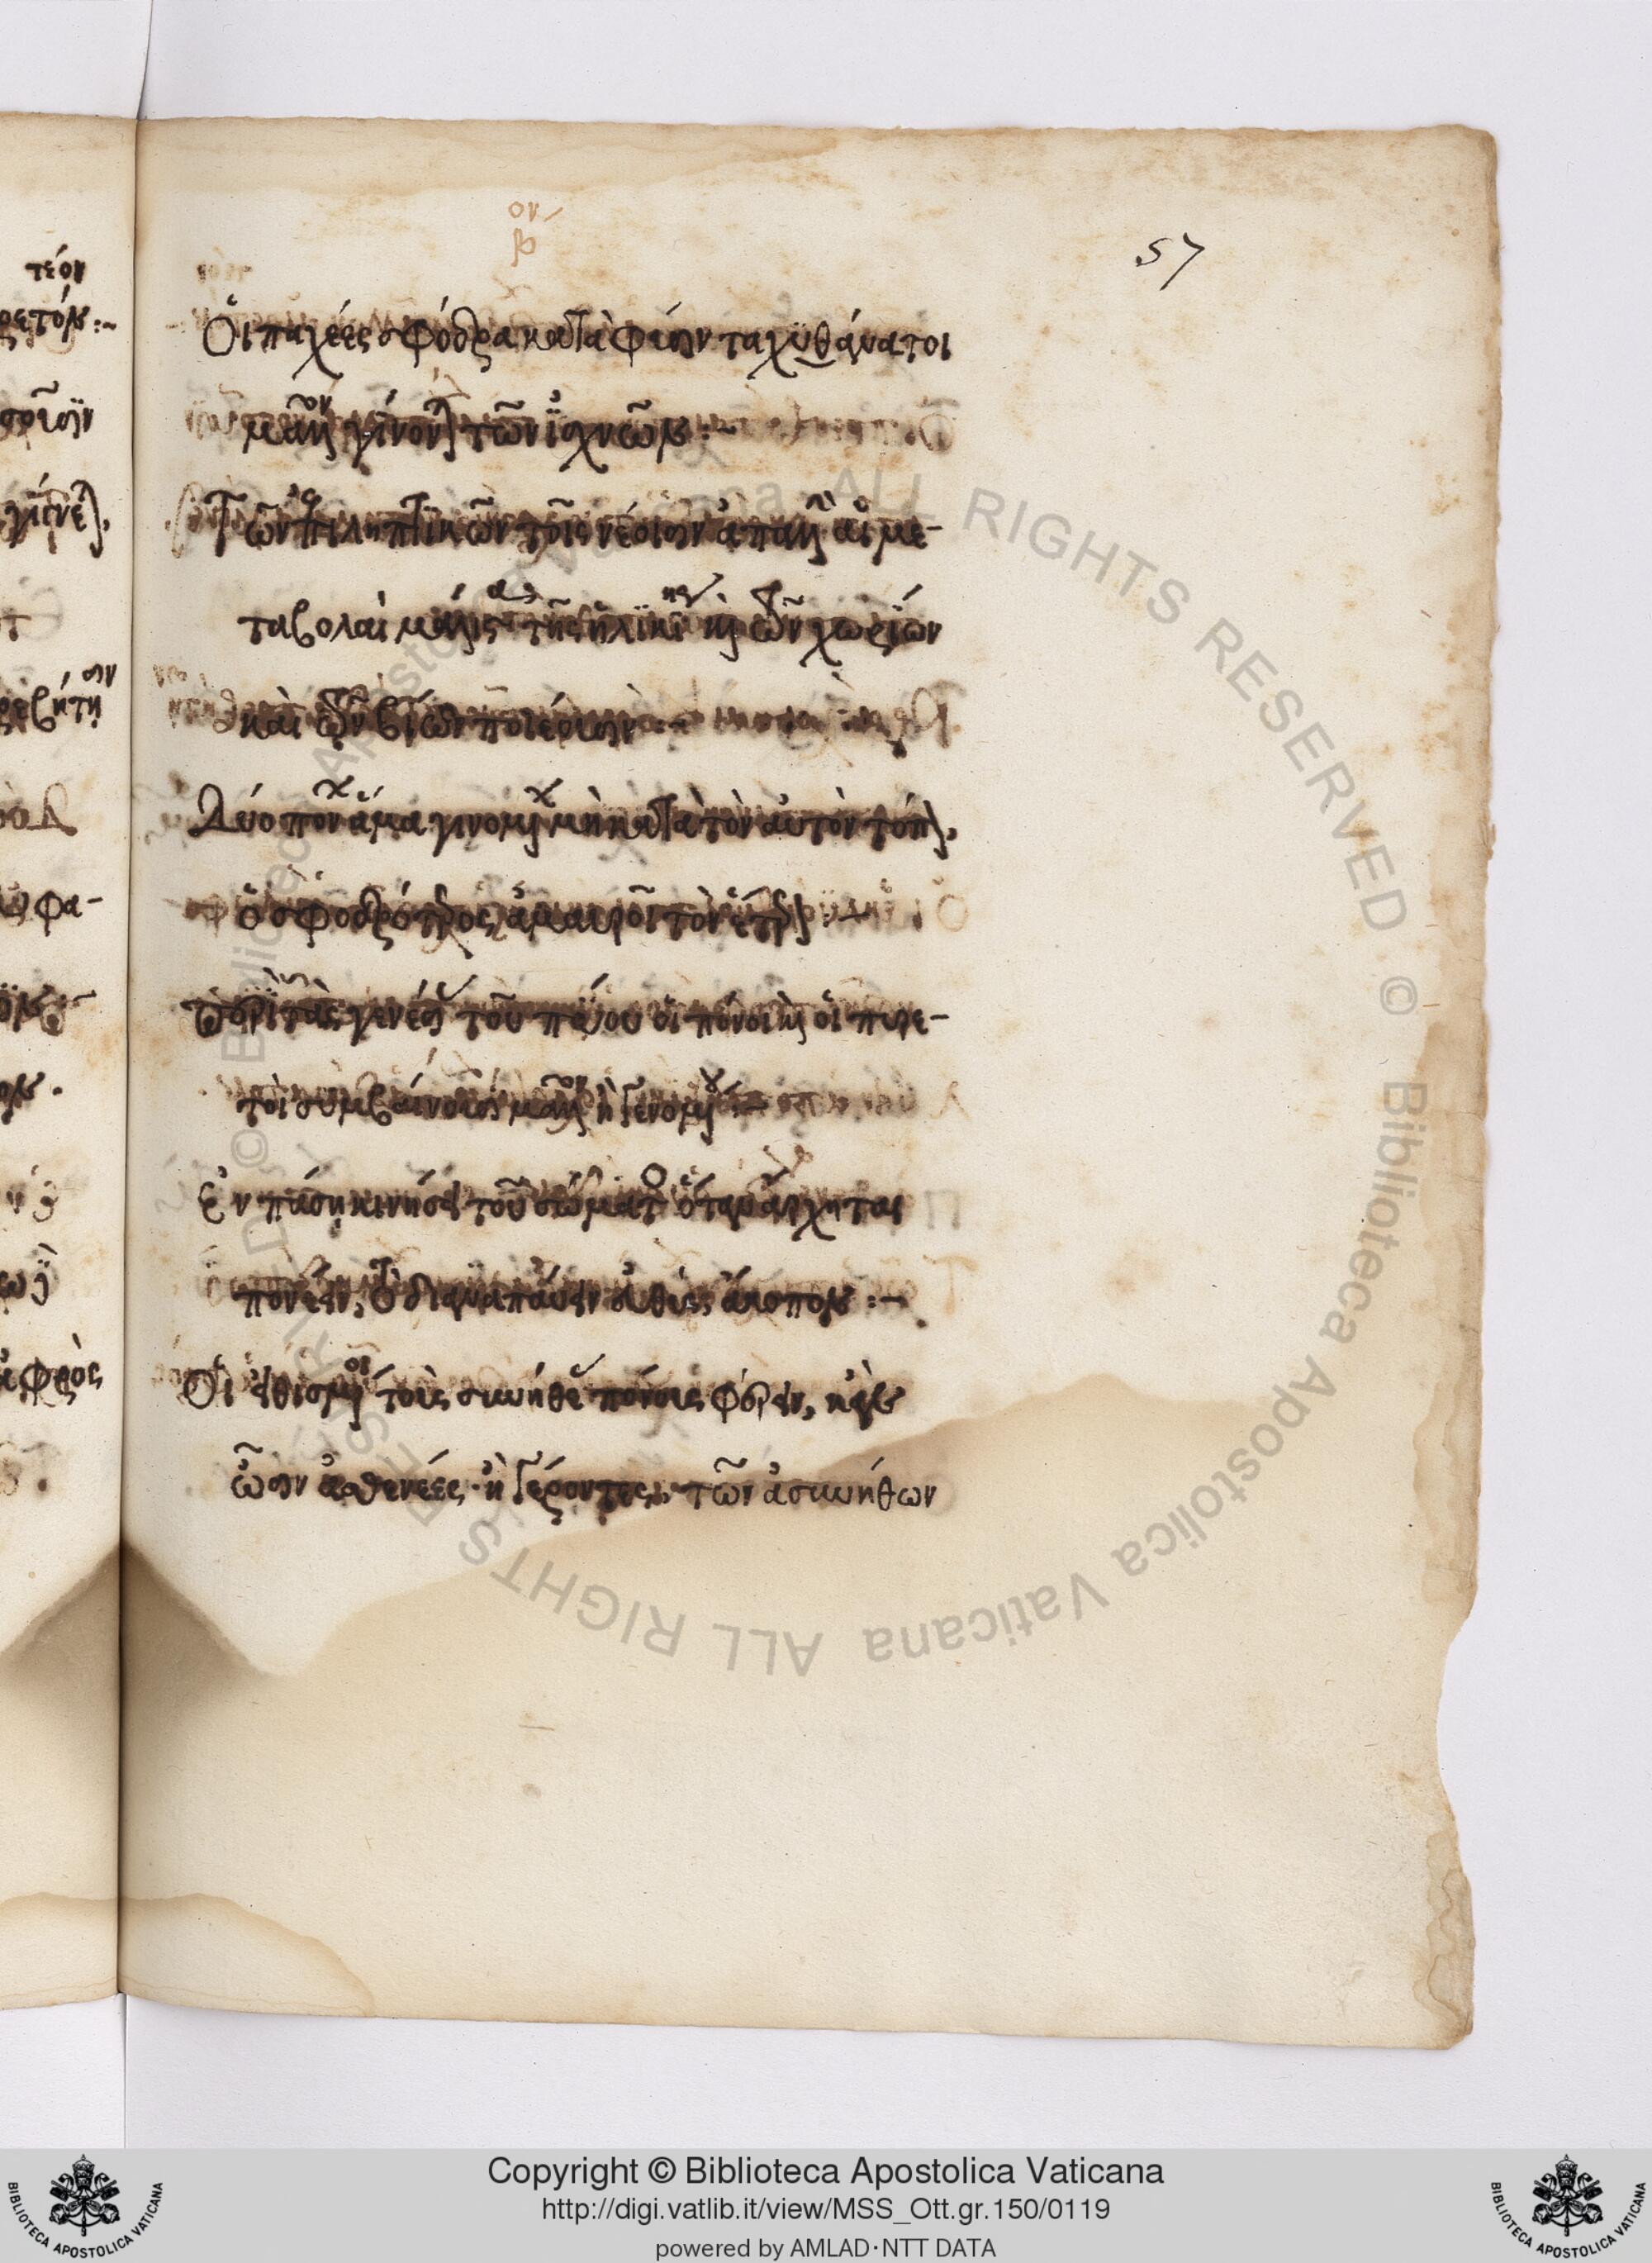 57
Οἱ παχέες σφόδρα κατὰ φύσιν ταχυθάνατοι
μᾶλλον γίνονται τῶν ἰσχνῶν :~
Τῶν ἐπιληπτικῶν τοῖς νέοισιν ἀπαλλαγὴν αἱ με-
ταβολαὶ μάλιστα τῆς ἡλικίης καὶ τῶν χωρίων
καὶ τῶν βίων ποιέουσιν :~
Δύο πόνων ἅμα γινομένων μὴ κατὰ τὸν αὐτὸν τόπον,
ὁ σφοδρότερος ἀμαυροῖ τὸν ἕτερον :~
Περὶ τὰς γενέσεις τοῦ πύου οἱ πόνοι καὶ οἱ πυρε-
τοὶ συμβαίνουσι μᾶλλον ἢ γενομένου :~
Ἐν πάσῃ κινήσει τοῦ σώματος ὅταν ἄρχηται
πονέειν, τὸ διαναπαύειν εὐθὺς, ἄκοπον :~
Οἱ εἰθισμένοι τοὺς συνήθεις πόνους φέρειν, κἢν
ὦσιν ἀσθενέες ἢ γέροντες, τῶν ἀσυνήθων
© Biblioteca Apostolica Vaticana ALL RIGHTS RESERVED © Biblioteca Apostolica Vaticana ALL RIGHTS RESERVED
Copyright © Biblioteca Apostolica Vaticana
http://digi.vatlib.it/view/MSS_Ott.gr.150/0119
powered by AMLAD·NTT DATA
BIBLIOTECA APOSTOLICA VATICANA
BIBLIOTECA APOSTOLICA VATICANA